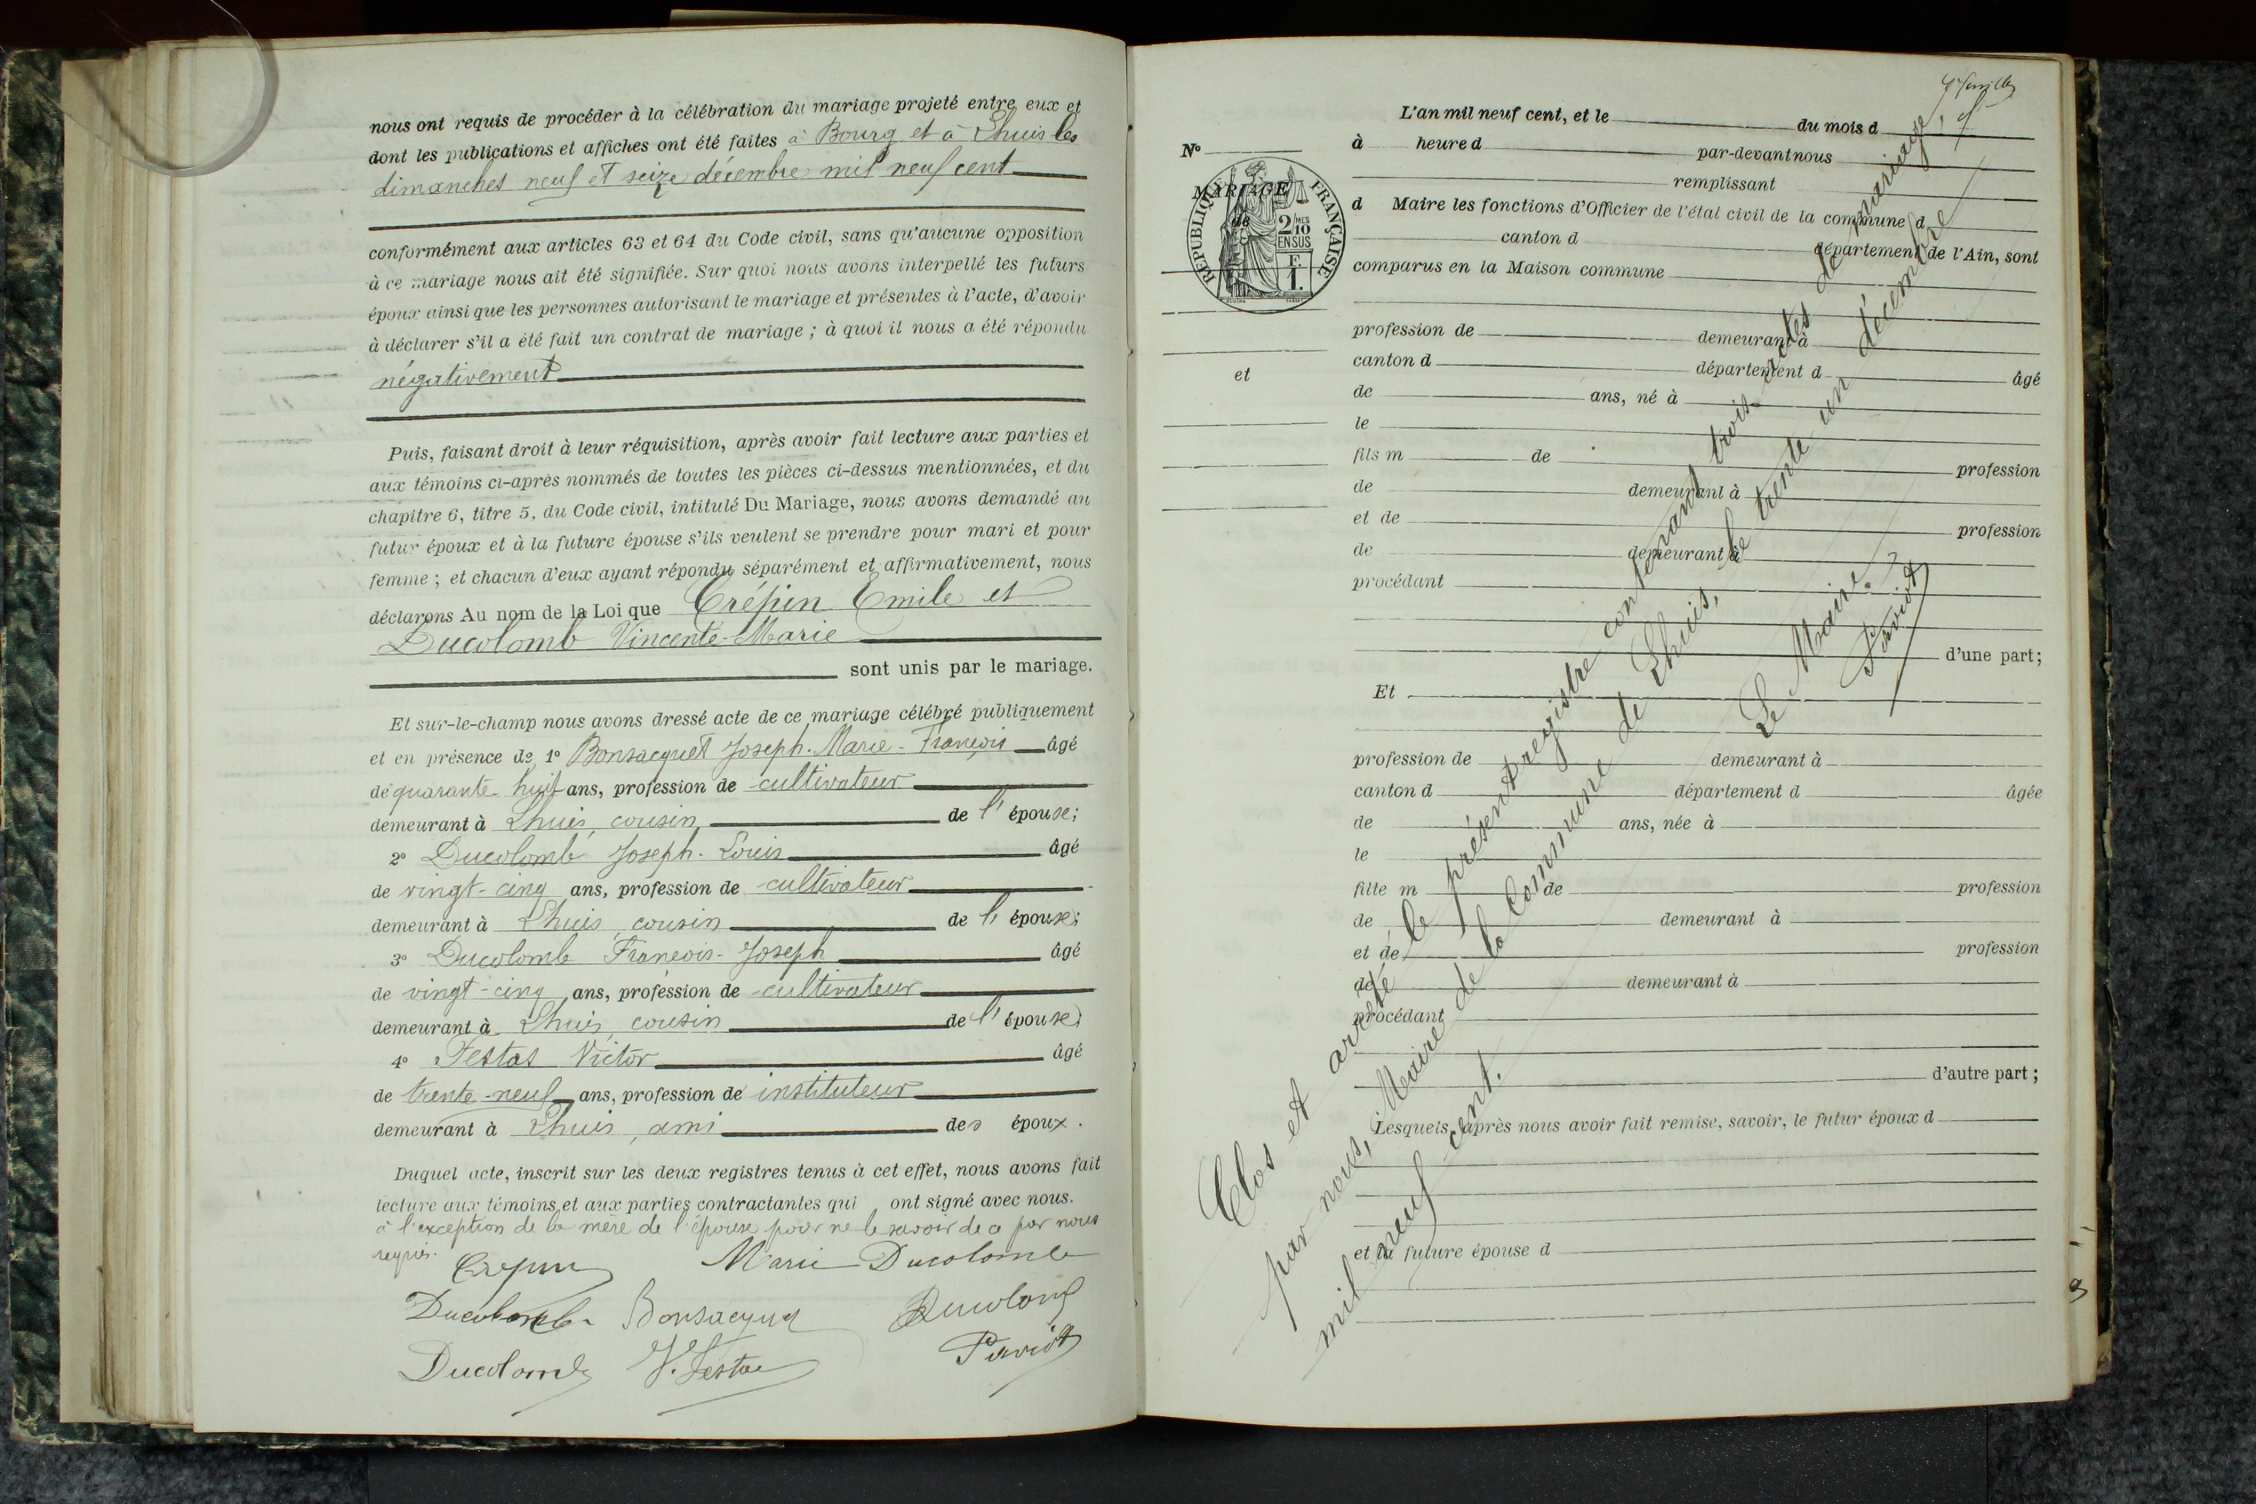 nous ont requis de procéder à la célébration du mariage projeté entre eux et
dont les publications et affiches ont été faites à Bourg et à Lhuis les
dimanches neuf et seize décembre mil neuf cent
conformément aux articles 63 et 64 du Code civil, sans qu'aucune opposition
à ce mariage nous ait été signifiée. Sur quoi nous avons interpellé les futurs
époux ainsi que les personnes autorisant le mariage et présentes à l'acte, d'avoir
à déclarer s'il a été fait un contrat de mariage ; à quoi il nous a été répondu
négativement
Puis, faisant droit à leur réquisition, après avoir fait lecture aux parties et
aux témoins ci-après nommés de toutes les pièces ci-dessus mentionnées, et du
chapitre 6, titre 5, du Code civil, intitulé Du Mariage, nous avons demandé au
futur époux et à la future épouse s'ils veulent se prendre pour mari et pour
femme ; et chacun d'eux ayant répondu séparément et affirmativement, nous
déclarons Au nom de la Loi que Crépin Emile et
Ducolomb Vincente-Marie
sont unis par le mariage.
Et sur-le-champ nous avons dressé acte de ce mariage célébré publiquement
et en présence de 1° Bonsacquet Joseph-Marie-François âgé
de quarante-huit ans, profession de cultivateur
demeurant à Lhuis, cousin de l'épouse;
2° Ducolomb Joseph-Louis âgé
de vingt-cinq ans, profession de cultivateur
demeurant à Lhuis, cousin de l'épouse;
3° Ducolomb François-Joseph âgé
de vingt-cinq ans, profession de cultivateur
demeurant à Lhuis, cousin de l'épouse;
4° Festas Victor âgé
de trente-neuf ans, profession de instituteur
demeurant à Lhuis, ami des époux.
Duquel acte, inscrit sur les deux registres tenus à cet effet, nous avons fait
lecture aux témoins et aux parties contractantes qui ont signé avec nous.
à l'exception de la mère de l'épouse pour ne le savoir de ce par nous
requis.
Crépin Marie Ducolomb
Ducolomb Bonsacquet Ducolomb
Ducolomb V. Festas Paviot
N°
MARIAGE
de
RÉPUBLIQUE FRANÇAISE
2/10 EN SUS
F. 1.
et
L'an mil neuf cent, et le du mois d
à heure d par-devant nous
remplissant
d Maire les fonctions d'Officier de l'état civil de la commune d
canton d département de l'Ain, sont
comparus en la Maison commune
profession de demeurant à
canton d département d âgé
de ans, né à
le
fils m de profession
de demeurant à
et de profession
de demeurant à
procédant
d'une part;
Et
profession de demeurant à
canton d département d âgée
de ans, née à
le
fille m de profession
de demeurant à
et de profession
de demeurant à
procédant
d'autre part ;
Lesquels, après nous avoir fait remise, savoir, le futur époux d
et la future épouse d
Clos et arrêté le présent registre contenant trois actes de mariage,
par nous, Maire de la Commune de Lhuis, le trente un décembre
mil neuf cent.
Le Maire.
Paviot